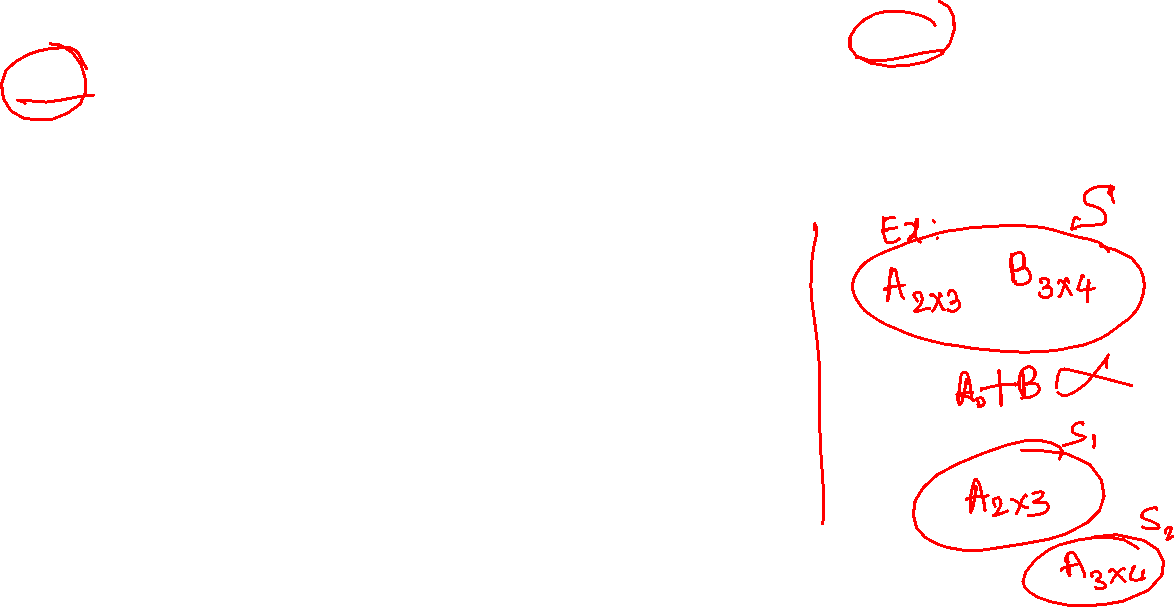 Ex: S
A 2x3 B 3x4
A+B
S1
A 2x3
S2
A 3x4